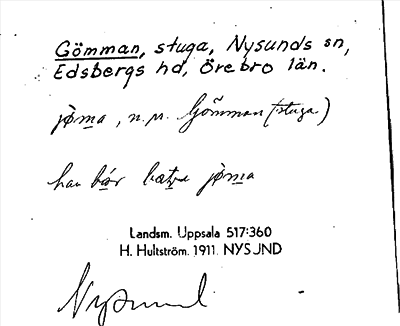 Gömman, stuga, Nysunds sn,
Edsbergs hd, Örebro län.
jö̀ma, n. m. Gömman (stuga)
han bor
Landsm. Uppsala 517:360
H. Hultström. 1911. NYSUND
Nysund